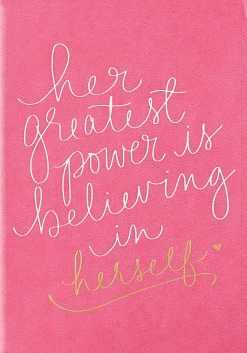 her
greatest
power is
believing
in
herself